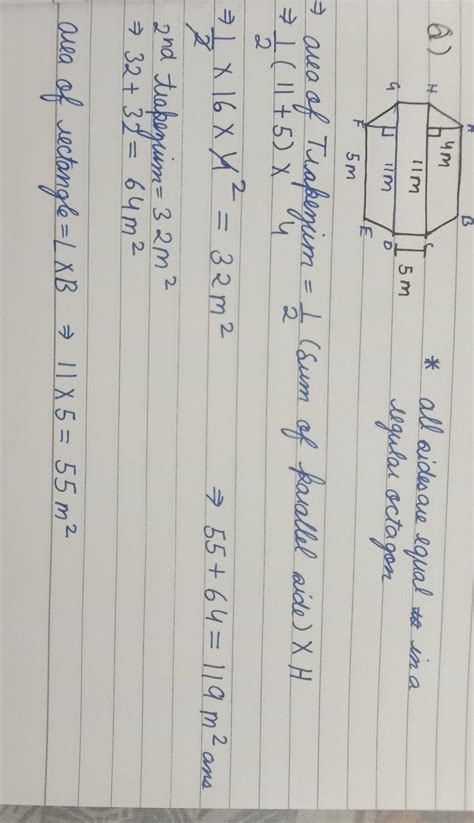 Q)
A
B
H
4m
11m
C
5m
G
11m
D
F
5m
E
* all sides are equal in a
regular octagon
⇒ area of Trapezium = 1/2 (sum of parallel side) X H
⇒ 1/2 (11+5) X 4
⇒ 1/2 X 16 X 4 2 = 32m²
2nd trapezium = 32m²
⇒ 32 + 32 = 64m²
area of rectangle = L X B ⇒ 11 X 5 = 55 m²
⇒ 55 + 64 = 119 m² ans